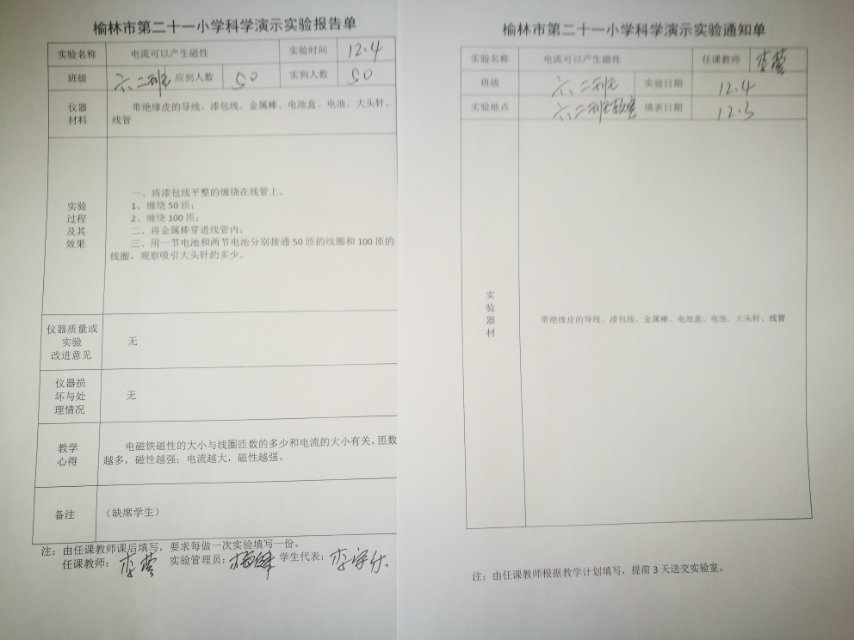 榆林市第二十一小学科学演示实验报告单
实验名称 电流可以产生磁性 实验时间 12.4
班级 六.二班 应到人数 50 实到人数 50
仪器
材料
带绝缘皮的导线、漆包线、金属棒、电池盒、电池、大头针、
线管
实验
过程
及其
效果
一、将漆包线平整的缠绕在线管上。
1、缠绕50匝；
2、缠绕100匝；
二、将金属棒穿进线管内；
三、用一节电池和两节电池分别接通50匝的线圈和100匝的
线圈，观察吸引大头针的多少。
仪器质量或
实验
改进意见
无
仪器损
坏与处
理情况
无
教学
心得
电磁铁磁性的大小与线圈匝数的多少和电流的大小有关。匝数
越多，磁性越强；电流越大，磁性越强。
备注
（缺席学生）
注：由任课教师课后填写，要求每做一次实验填写一份。
任课教师： 实验管理员： 学生代表：
榆林市第二十一小学科学演示实验通知单
实验名称 电流可以产生磁性 任课教师
班级 六.二班 实验日期 12.4
实验地点 六.二班教室 填表日期 12.3
实
验
器
材
带绝缘皮的导线、漆包线、金属棒、电池盒、电池、大头针、线管
注：由任课教师根据教学计划填写，提前3天送交实验室。